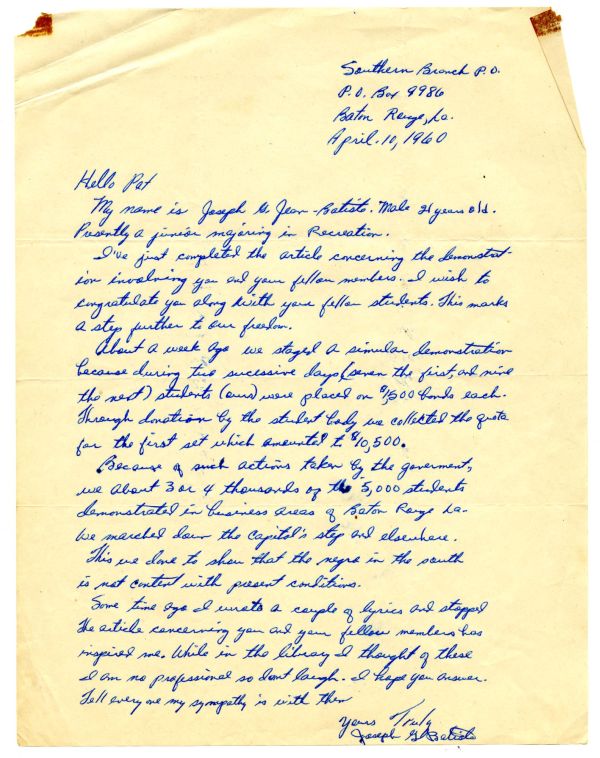 Southern Branch P.O.
P.O. Box 9986
Baton Rouge, La.
April. 10, 1960
Hello Pat
My name is Joseph G. Jean-Batiste. Male 21 years old.
Presently a junior majoring in Recreation.
I've just completed the article concerning the demonstrat-
ion involving you and your fellow members. I wish to
congratulate you along with your fellow students. This marks
a step further to our freedom.
About a week ago we staged a simular demonstration
because during two sucessive days (seven the first, and nine
the next) students (ours) were placed on $1,500 bonds each.
Through donation by the student body we collected the quota
for the first set which amounted to $10,500.
Because of such actions taken by the goverment,
we about 3 or 4 thousands of the 5,000 students
demonstrated in business areas of Baton Rouge La-
We marched down the capitol's step and elsewhere.
This we done to show that the negro in the south
is not content with present conditions.
Some time ago I wrote a couple of lyrics and stopped
The article concerning you and your fellow members has
inspired me. While in the library I thought of these
I am no professional so dont laugh. I hope you answer.
Tell every one my sympathy is with them
Yours Truly
Joseph G. Batiste